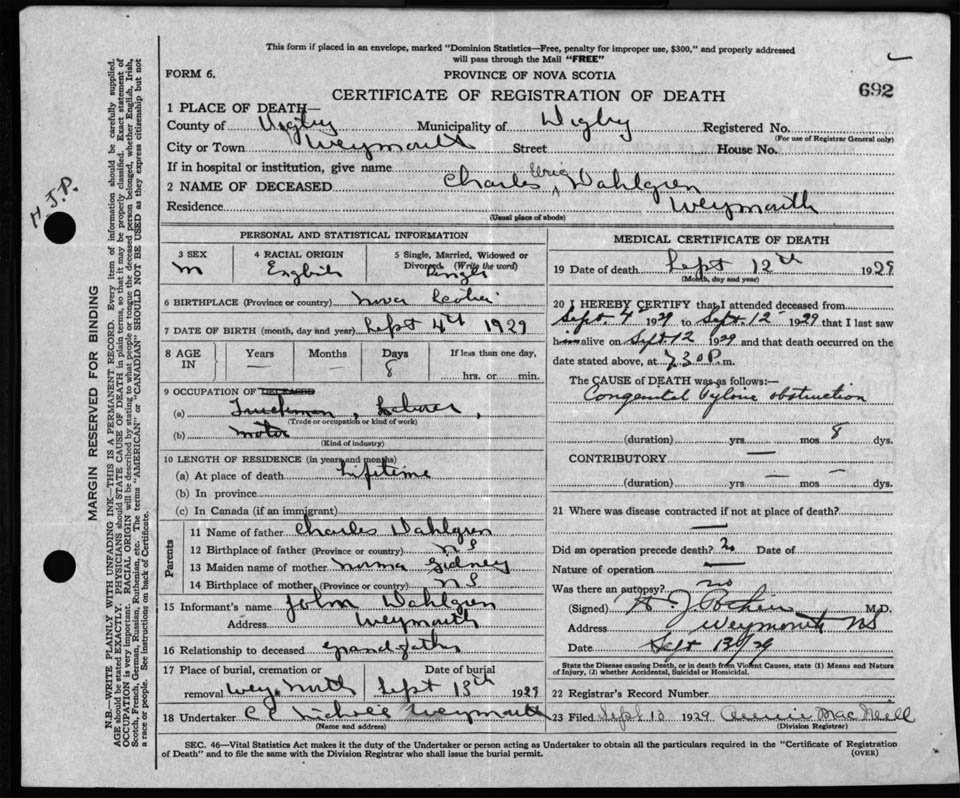 This form if placed in an envelope, marked "Dominion Statistics—Free, penalty for improper use, $300," and properly addressed
will pass through the Mail "FREE"
FORM 6.
PROVINCE OF NOVA SCOTIA
692
CERTIFICATE OF REGISTRATION OF DEATH
1 PLACE OF DEATH—
County of Digby Municipality of Digby Registered No.
(For use of Registrar General only)
City or Town Weymouth Street House No.
If in hospital or institution, give name
2 NAME OF DECEASED Charles Dahlgren
Residence Weymouth
(Usual place of abode)
PERSONAL AND STATISTICAL INFORMATION
3 SEX
M
4 RACIAL ORIGIN
English
5 Single, Married, Widowed or
Divorced (Write the word)
Single
6 BIRTHPLACE (Province or country) Nova Scotia
7 DATE OF BIRTH (month, day and year) Sept 4th 1929
8 AGE IN
Years Months Days If less than one day,
— — 8 hrs. or min.
9 OCCUPATION OF DECEASED
(a) Truckman, Laborer,
(Trade or occupation or kind of work)
(b) Motor
(Kind of industry)
10 LENGTH OF RESIDENCE (in years and months)
(a) At place of death Lifetime
(b) In province
(c) In Canada (if an immigrant)
Parents
11 Name of father Charles Dahlgren
12 Birthplace of father (Province or country) N S
13 Maiden name of mother Norma Sidney
14 Birthplace of mother (Province or country) N S
15 Informant's name John Dahlgren
Address Weymouth
16 Relationship to deceased grandfather
17 Place of burial, cremation or Date of burial
removal Wey. North Sept 13th 1929
18 Undertaker Weymouth
(Name and address)
MEDICAL CERTIFICATE OF DEATH
19 Date of death Sept 12th 1929
(Month, day and year)
20 I HEREBY CERTIFY that I attended deceased from
Sept. 4 1929 to Sept. 12 1929 that I last saw
h alive on Sept 12 1929 and that death occurred on the
date stated above, at 7.30 P. m.
The CAUSE OF DEATH was as follows:—
Congenital Pyloric obstruction
(duration) yrs. mos 8 dys.
CONTRIBUTORY —
(duration) yrs. — mos. — dys.
21 Where was disease contracted if not at place of death?
—
Did an operation precede death? no Date of
Nature of operation —
Was there an autopsy? no
(Signed) M.D.
Address Weymouth NS
Date Sept 13/29
State the Disease causing Death, or in death from Violent Causes, state (1) Means and Nature
of Injury, (2) whether Accidental, Suicidal or Homicidal.
22 Registrar's Record Number
23 Filed Sept 13 1929 MacNeill
(Division Registrar)
SEC. 46—Vital Statistics Act makes it the duty of the Undertaker or person acting as Undertaker to obtain all the particulars required in the "Certificate of Registration
of Death" and to file the same with the Division Registrar who shall issue the burial permit.
(OVER)
H.J.P.
MARGIN RESERVED FOR BINDING
N.B.—WRITE PLAINLY WITH UNFADING INK—THIS IS A PERMANENT RECORD. Every item of information should be carefully supplied.
AGE should be stated EXACTLY. PHYSICIANS should STATE CAUSE OF DEATH in plain terms, so that it may be properly classified. Exact statement of
OCCUPATION is very important. RACIAL ORIGIN will be described by stating to what people or tongue the deceased person belonged, whether English, Irish,
Scotch, French, German, Russian, Ruthenian, etc. The terms "AMERICAN" or "CANADIAN" SHOULD NOT BE USED as they express citizenship but not
a race or people. See instructions on back of Certificate.